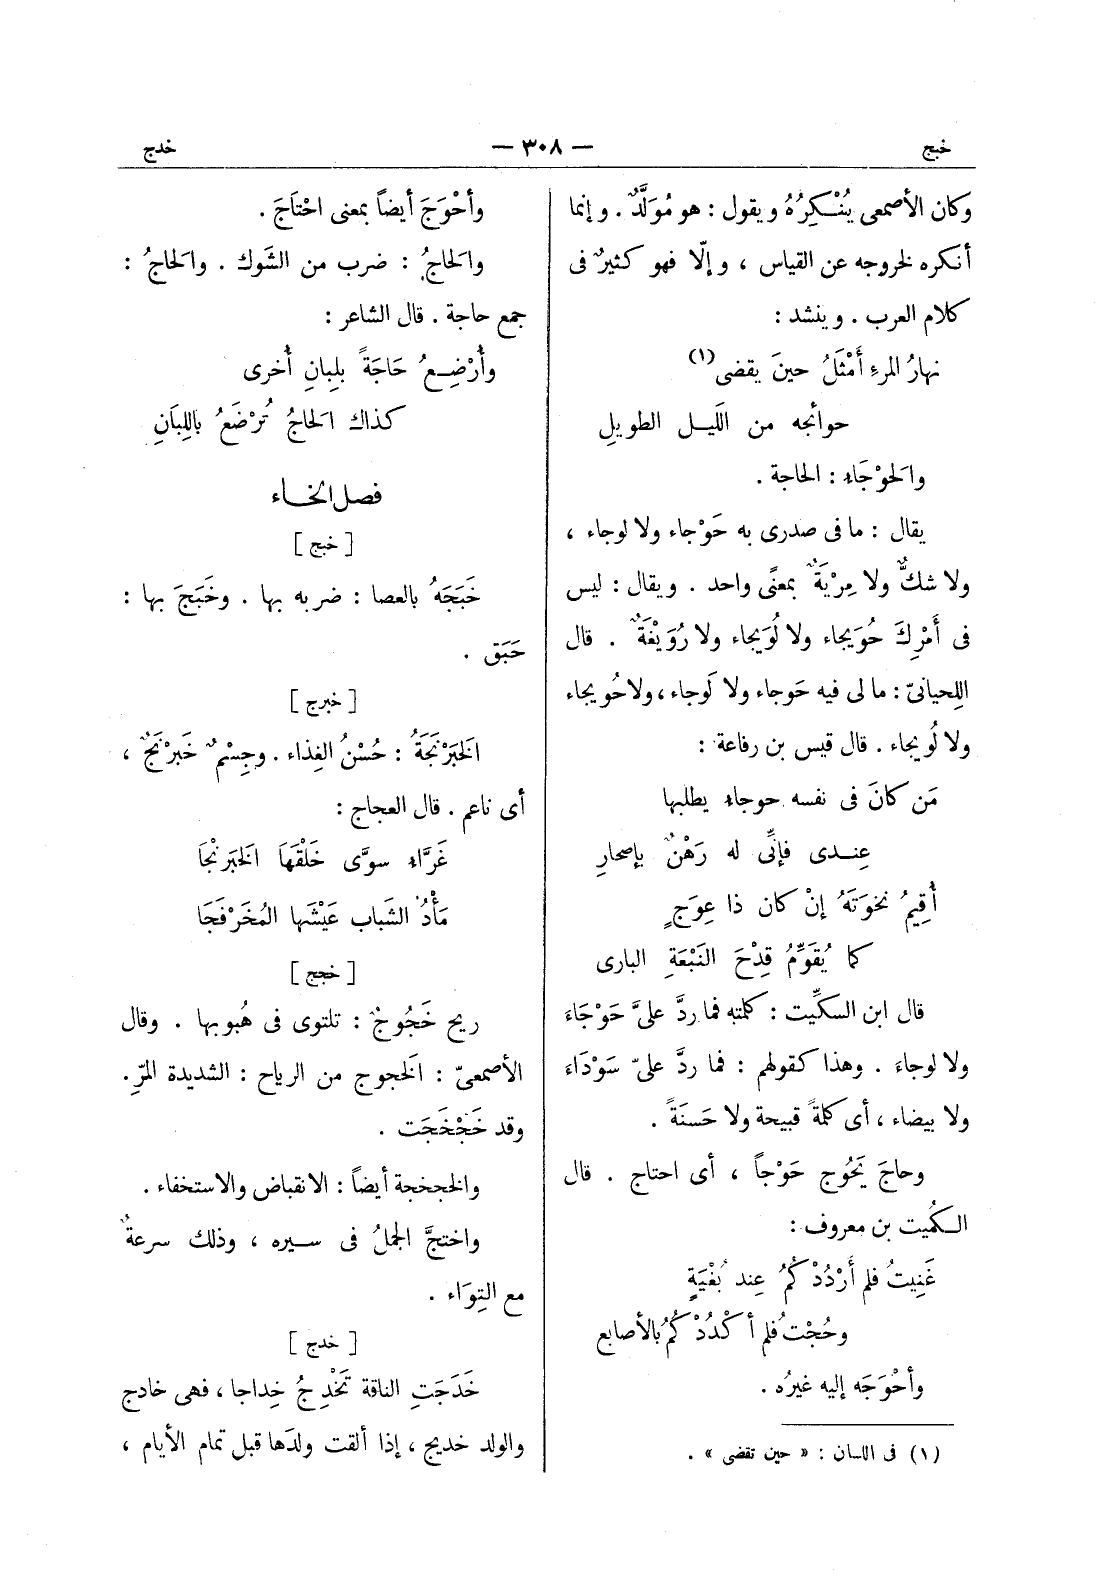 خبج — ٣٠٨ — خدج
وكان الأصمعى يُنْكِرُهُ ويقول : هو مُوَلَّدٌ . وإنما
أنكره لخروجه عن القياس ، وإلّا فهو كثيرٌ فى
كلام العرب . وينشد :
نهارُ المرءِ أَمْثَلُ حينَ يقضى(١)
حوائجه من اللَيـل الطويلِ
والحَوْجَاءِ : الحاجة .
يقال : ما فى صدرى به حَوْجاء ولا لوجاء ،
ولا شكٌّ ولا مِرْيَةٌ بمعنًى واحد . ويقال : ليس
فى أَمْرِكَ حُوَيجاء ولا لُوَيجاء ولا رُوَيْغَةٌ . قال
اللِحيانىّ : ما لى فيه حَوجاء ولا لَوجاء ، ولا حُويجاء
ولا لُويجاء . قال قيس بن رفاعة :
مَن كانَ فى نفسه حوجاءِ يطلبها
عِنـدى فإنِّى له رَهْنٌ بإصحارِ
أُقِيمُ نخوَتَهُ إنْ كان ذا عِوَجٍ
كما يُقَوِّمُ قِدْحَ النَبْعَةِ البارى
قال ابن السكِّيت : كلمته فما ردَّ علىَّ حَوْجَاءَ
ولا لوجاءَ . وهذا كقولهم : فما ردَّ علىّ سَوْدَاءَ
ولا بيضاء ، أى كلمةً قبيحة ولا حَسَنَةً .
وحاجَ يَحُوج حَوْجاً ، أى احتاج . قال
الكُميت بن معروف :
غَنِيتُ فلم أَرْدُدْ كُمُ عِند بُغْيَةٍ
وحُجْتُ فلم أكْدُدْكُمُ بالأصابع
وأحْوَجَه إليه غيرُه .
(١) فى اللسان : « حين تقضى » .
وأحْوَجَ أيضاً بمعنى احْتاَجَ .
والحَاجُ : ضرب من الشَوك . والحَاجُ :
جمع حاجة . قال الشاعر :
وأُرْضِـعُ حَاجَةً بِلِبانِ أُخرى
كذاك الحَاجُ تُرْضَعُ باللِبَانِ
فصل الخـاء
[ خبج ]
خَبَجَهُ بالعصا : ضربه بها . وخَبَجَ بها :
حَبَق .
[ خبرج ]
الخَبَرْنَجَةُ : حُسْنُ الغِذاء . وجِسْمٌ خَبَرْنَجٌ ،
أى ناعم . قال العجاج :
غَرَّاءِ سوَّى خَلْقَهَا الخَبَرنْجَا
مَأْدُ الشَباب عَيْشَها المُخَرْفَجَا
[ خجج ]
ريح خَجُوجٌ : تلتوى فى هُبوبها . وقال
الأصمعىّ : الخَجوج من الرياح : الشديدة المَرِّ.
وقد خَجْخَجَت .
والخجخجة أيضاً : الانقباض والاستخفاء .
واختجَّ الجملُ فى سـيره ، وذلك سرعةٌ
مع التِوَاء .
[ خدج ]
خَدَجَتِ الناقة تَخْدِجُ خِداجا ، فهى خادج
والولد خديج ، إذا ألقت ولدَها قبل تمام الأيام ،